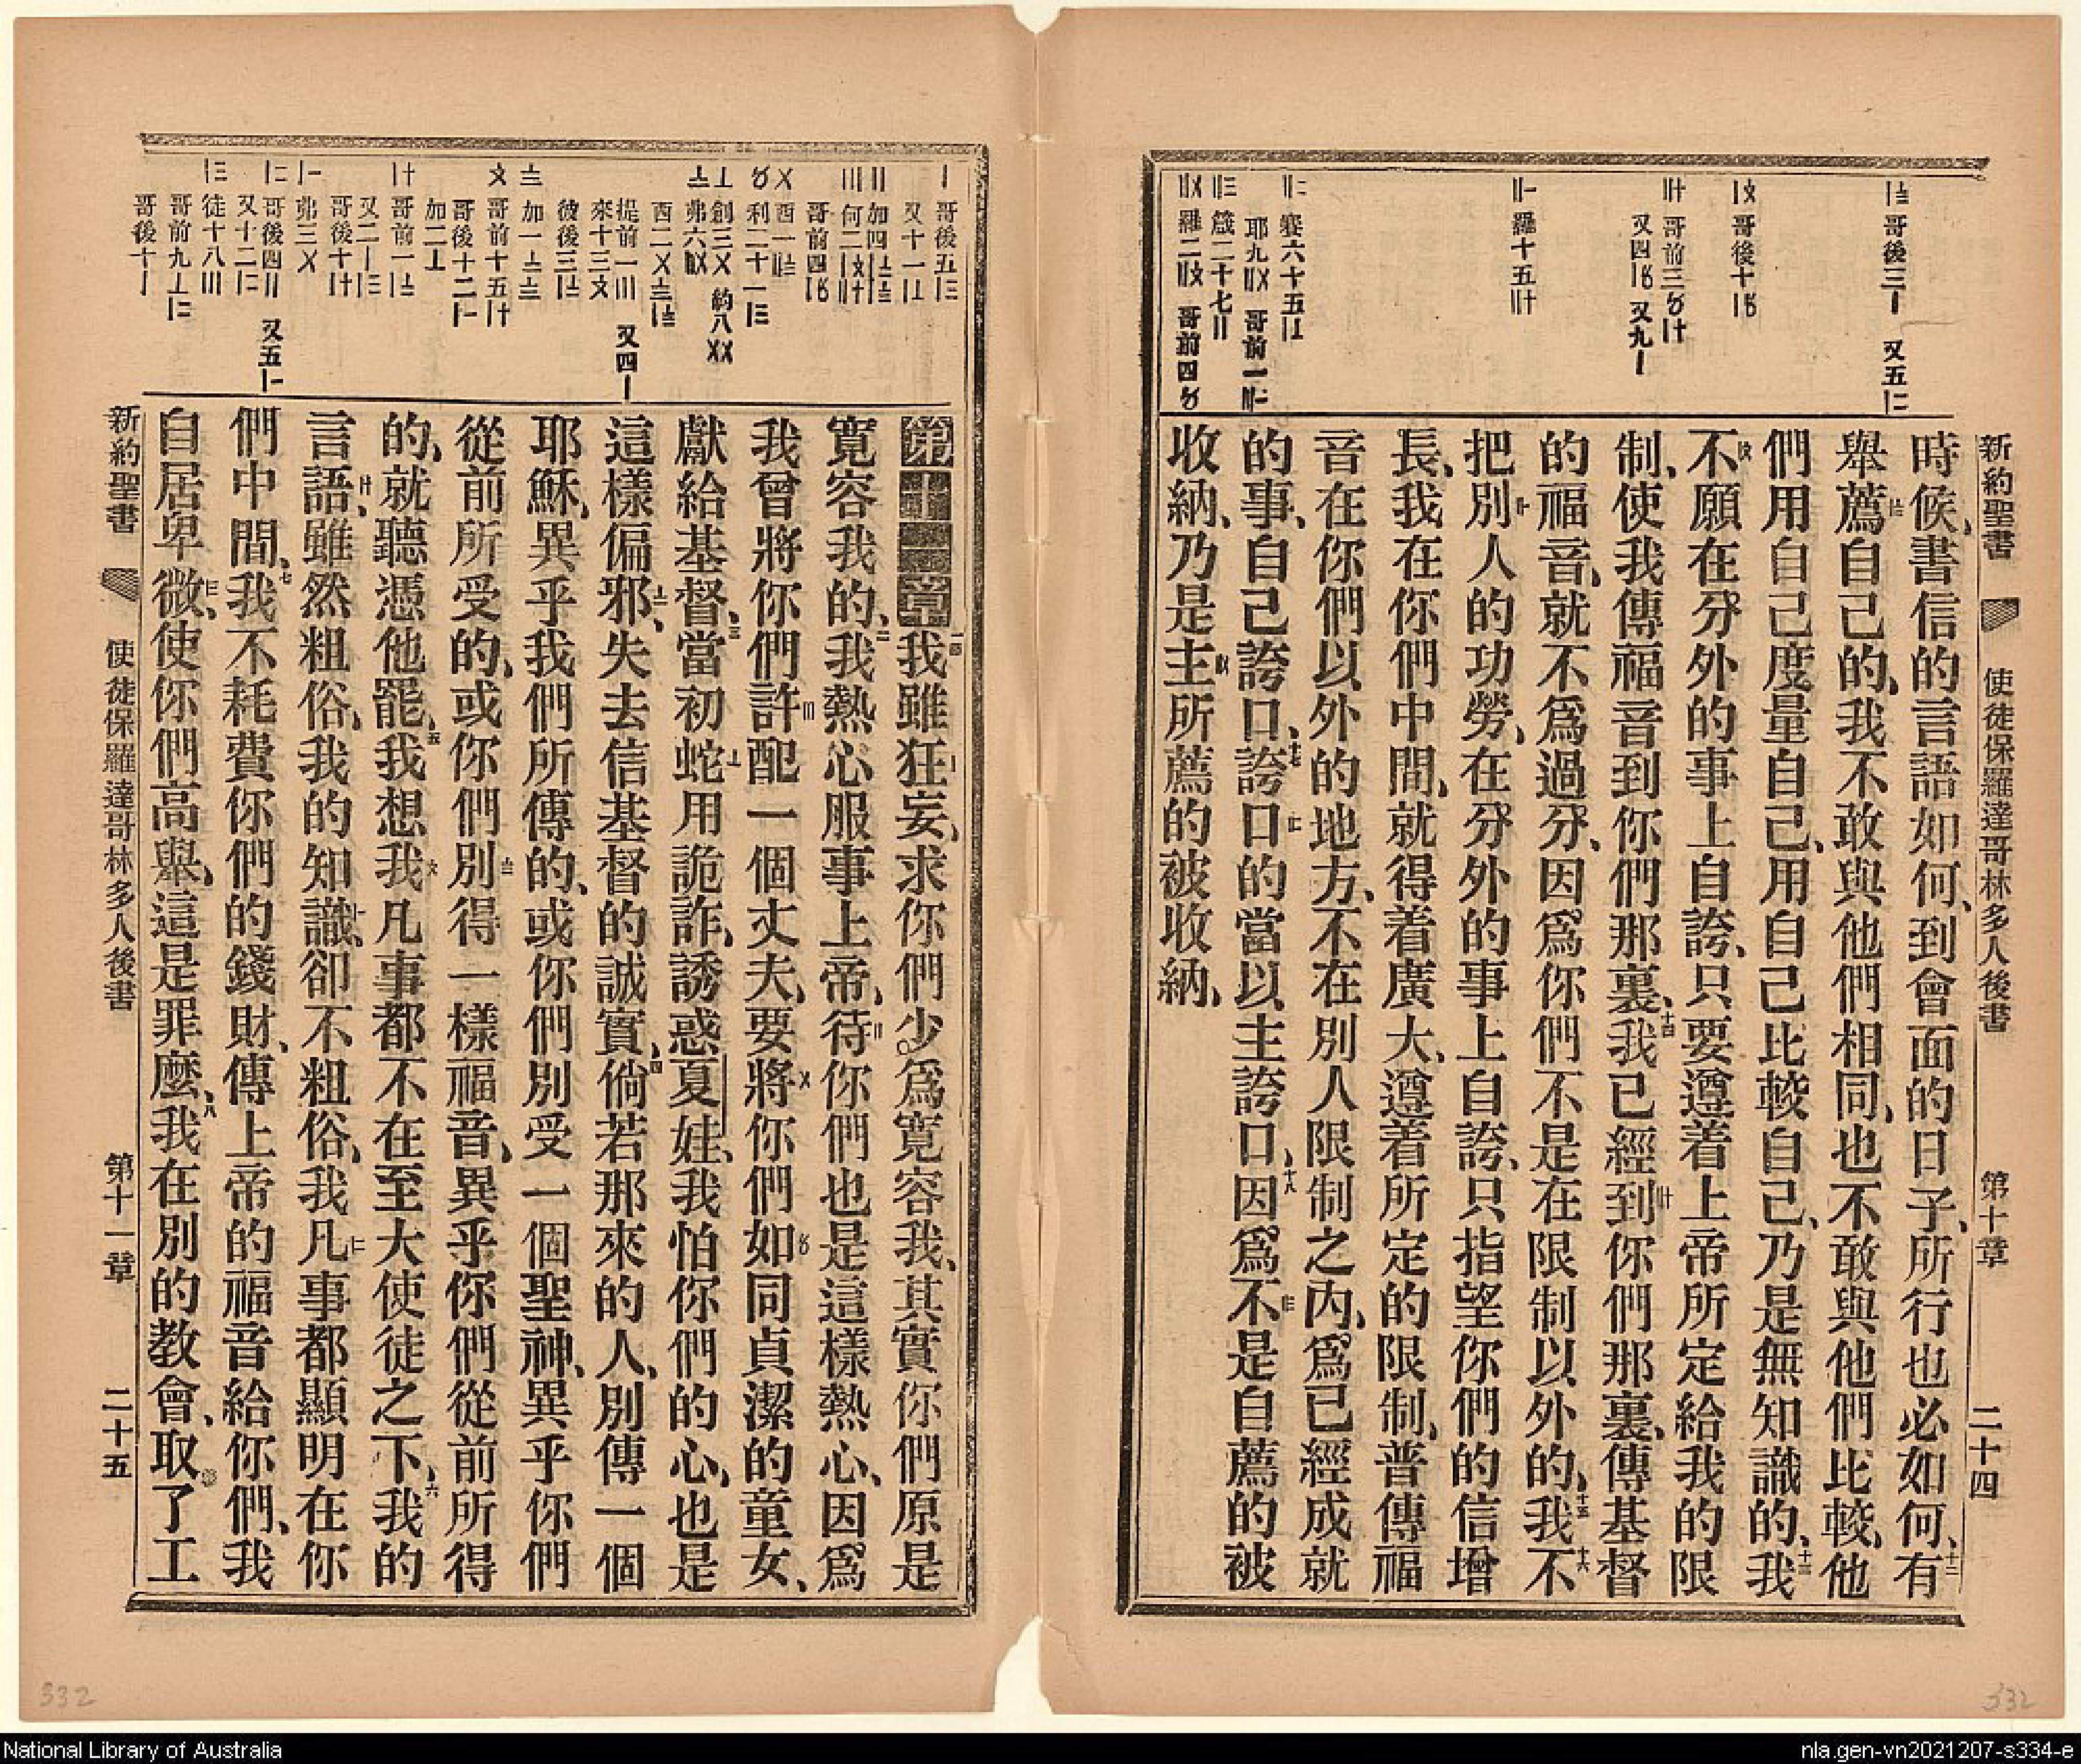 新約聖書 使徒保羅達哥林多人後書 第十章 二十四
〢〨 哥後三〡 又五〢
時候、書信的言語如何、到會面的日子、所行也必如何、十二有
舉薦自己的、我不敢與他們相同、也不敢與他們比較、他
們用自己度量自己、用自己比較自己、乃是無知識的、十三我
不願在分外的事上自誇、只要遵着上帝所定給我的限
制、使我傳福音到你們那裏、十四我已經到你們那裏、傳基督
的福音、就不爲過分、因爲你們不是在限制以外的、十五我不十六
把別人的功勞、在分外的事上自誇、只指望你們的信增
長、我在你們中間、就得着廣大、遵着所定的限制、普傳福
音在你們以外的地方、不在別人限制之內、爲已經成就
的事、自己誇口、十七誇口的當以主誇口、十八因爲不是自薦的被
收納、乃是主所薦的被收納、
第十一章一我雖狂妄、求你們少爲寬容我、其實你們原是
寬容我的、二我熱心服事上帝、待你們也是這樣熱心、因爲
我曾將你們許配一個丈夫、要將你們如同貞潔的童女、
獻給基督、三當初蛇用詭詐、誘惑夏娃、我怕你們的心、也是
這樣偏邪、失去信基督的誠實、四倘若那來的人、別傳一個
耶穌、異乎我們所傳的、或你們別受一個聖神、異乎你們
從前所受的、或你們別得一樣福音、異乎你們從前所得
的、就聽憑他罷、五我想我凡事都不在至大使徒之下、六我的
言語、雖然粗俗、我的知識、卻不粗俗、我凡事都顯明在你
們中間、七我不耗費你們的錢財、傳上帝的福音給你們、我
自居卑微、使你們高舉、這是罪麼、八我在別的教會、取了工
新約聖書 使徒保羅達哥林多人後書 第十一章 二十五
332
332
National Library of Australia
nla.gen-vn2021207-s334-e